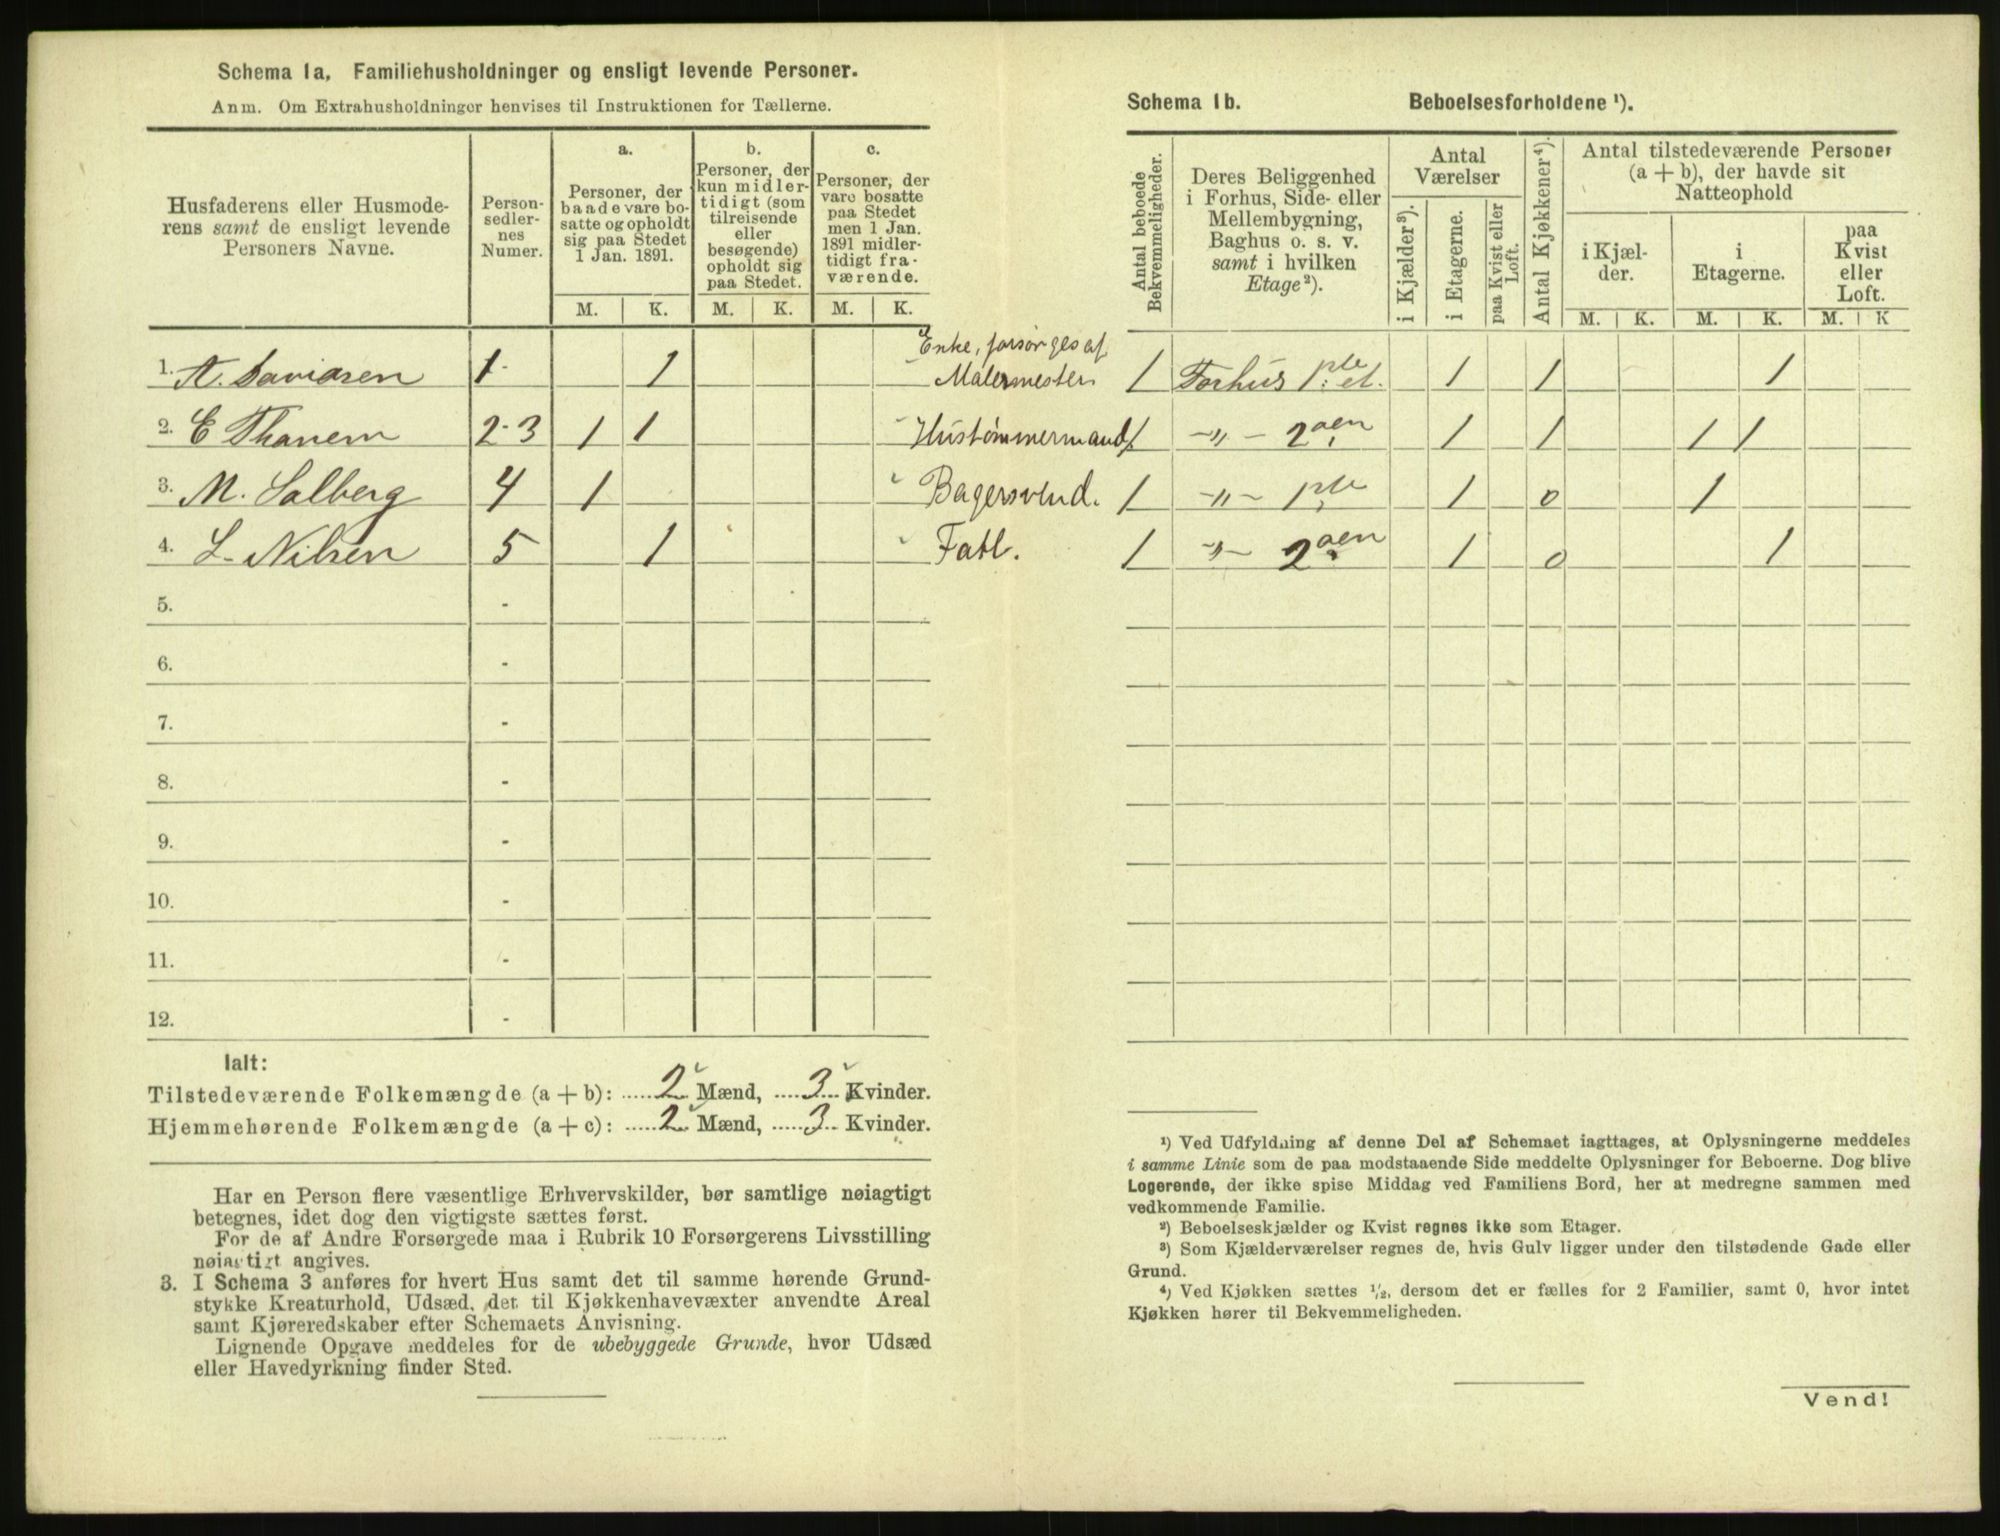 Schema 1a. Familiehusholdninger og ensligt levende Personer.
Anm. Om Extrahusholdninger henvises til Instruktionen for Tællerne.
Husfaderens eller Husmode-
rens samt de ensligt levende
Personers Navne.
Person-
sedler-
nes
Numer.
a.
Personer, der
baade vare bo-
satte og opholdt
sig paa Stedet
1 Jan. 1891.
b.
Personer, der
kun midler-
tidigt (som
tilreisende
eller
besøgende)
opholdt sig
paa Stedet.
c.
Personer, der
vare bosatte
paa Stedet
men 1 Jan.
1891 midler-
tidigt fra-
værende.
M. K. M. K. M. K.
1. A. Davidsen 1 1 Enke, forsørges af
Malermester
2. E Thanem 2-3 1 1 Hustømmermand
3. M. Salberg 4 1 Bagersvend.
4. L. Nilsen 5 1 Fatl.
5. -
6. -
7. -
8. -
9. -
10. -
11. -
12. -
Ialt:
Tilstedeværende Folkemængde (a + b): 2 Mænd, 3 Kvinder.
Hjemmehørende Folkemængde (a + c): 2 Mænd, 3 Kvinder.
Har en Person flere væsentlige Erhvervskilder, bør samtlige nøiagtigt
betegnes, idet dog den vigtigste sættes først.
For de af Andre Forsørgede maa i Rubrik 10 Forsørgerens Livsstilling
nøiagtigt angives.
3. I Schema 3 anføres for hvert Hus samt det til samme hørende Grund-
stykke Kreaturhold, Udsæd, det til Kjøkkenhavevæxter anvendte Areal
samt Kjøreredskaber efter Schemaets Anvisning.
Lignende Opgave meddeles for de ubebyggede Grunde, hvor Udsæd
eller Havedyrkning finder Sted.
Schema 1b. Beboelsesforholdene ¹).
Antal beboede
Bekvemmeligheder.
Deres Beliggenhed
i Forhus, Side- eller
Mellembygning,
Baghus o. s. v.
samt i hvilken
Etage²).
Antal
Værelser
i Kjælder³).
i Etagerne.
paa Kvist eller
Loft.
Antal Kjøkkener⁴).
Antal tilstedeværende Personer
(a + b), der havde sit
Natteophold
i Kjæl-
der.
i
Etagerne.
paa
Kvist
eller
Loft.
M. K. M. K. M. K
1 Forhus 1ste et. 1 1 1
1 -"- 2den 1 1 1 1
1 -"- 1ste 1 0 1
1 -"- 2den 1 0 1
¹) Ved Udfyldning af denne Del af Schemaet iagttages, at Oplysningerne meddeles
i samme Linie som de paa modstaaende Side meddelte Oplysninger for Beboerne. Dog blive
Logerende, der ikke spise Middag ved Familiens Bord, her at medregne sammen med
vedkommende Familie.
²) Beboelseskjælder og Kvist regnes ikke som Etager.
³) Som Kjælderværelser regnes de, hvis Gulv ligger under den tilstødende Gade eller
Grund.
⁴) Ved Kjøkken sættes ½, dersom det er fælles for 2 Familier, samt 0, hvor intet
Kjøkken hører til Bekvemmeligheden.
Vend!